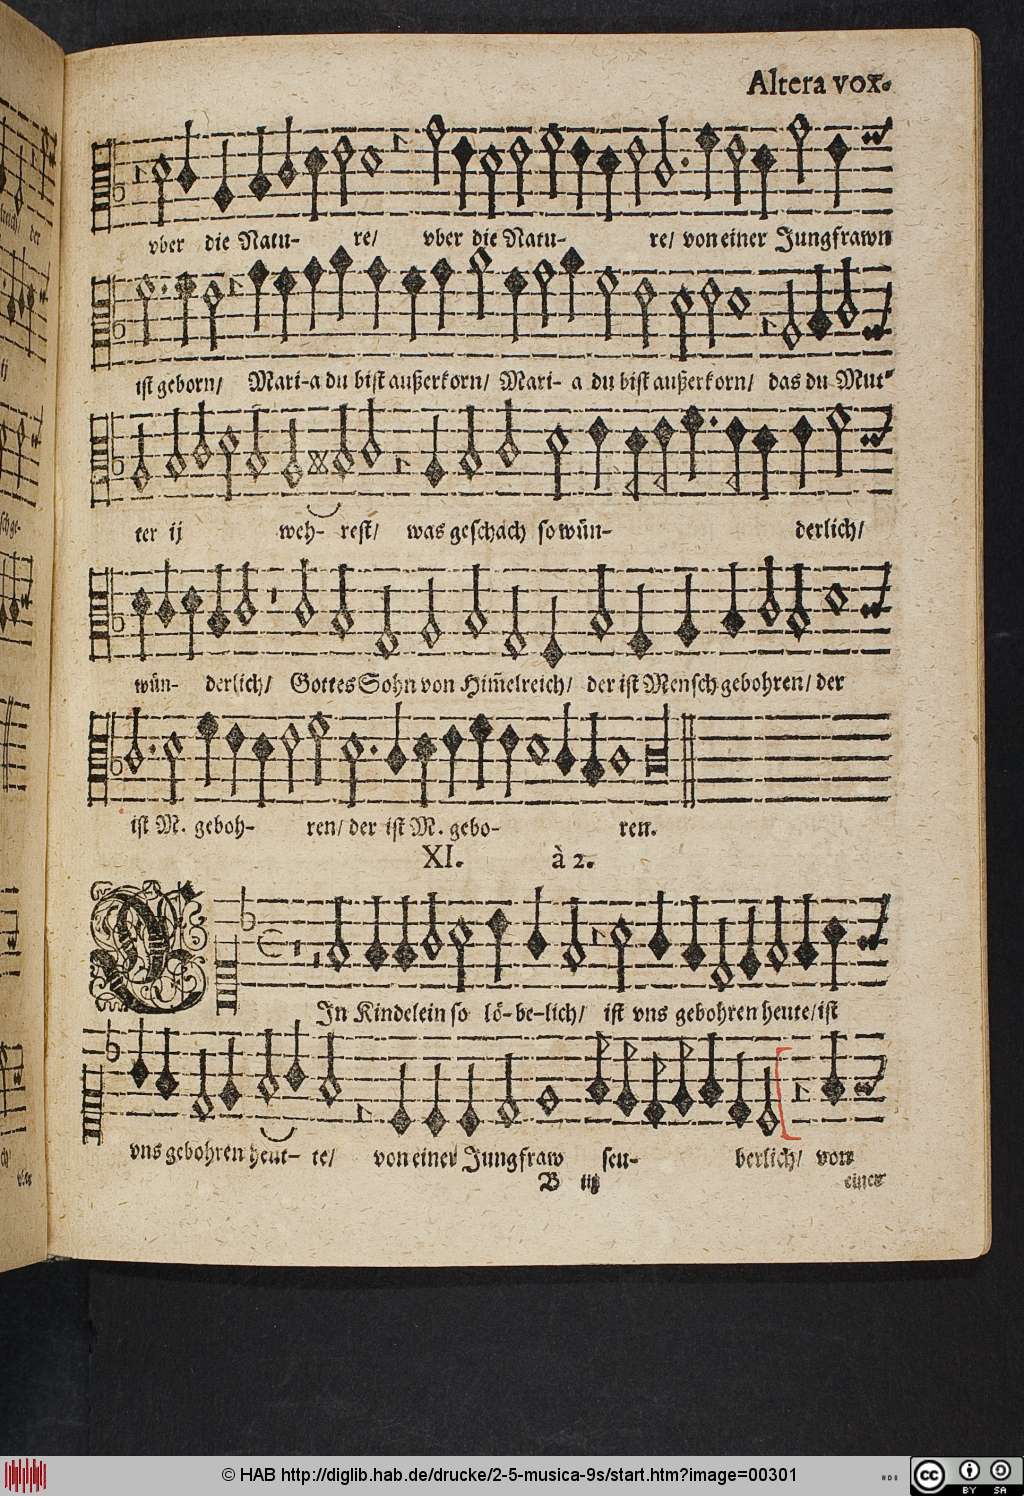 Altera vox.
vber die Natu- re/ vber die Natu- re/ von einer Jungfrawn
ist geborn/ Mari-a du bist außerkorn/ Mari- a du bist außerkorn/ das du Mut-
ter ij weh- rest/ was geschach so wün- derlich/
wün- derlich/ Gottes Sohn von Him̃elreich/ der ist Mensch gebohren/ der
ist M. geboh- ren/ der ist M. gebo- ren.
XI. à 2.
EIn Kindelein so lö-be-lich/ ist vns gebohren heute/ ist
vns gebohren heut- te/ von einer Jungfraw seu- berlich/ von
B iiij einer
© HAB http://diglib.hab.de/drucke/2-5-musica-9s/start.htm?image=00301
cc BY SA